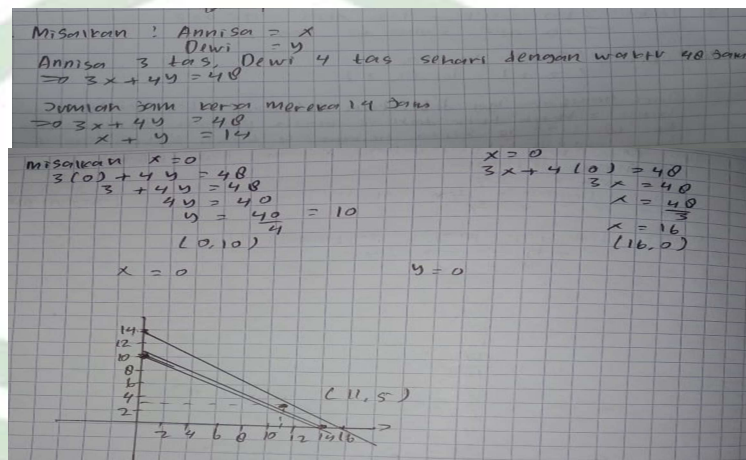 Misalkan : Annisa = x
Dewi = y
Annisa 3 tas, Dewi 4 tas sehari dengan waktu 48 jam
=> 3x + 4y = 48
Jumlah jam kerja mereka 14 jam
=> 3x + 4y = 48
x + y = 14
misalkan x = 0
3(0) + 4y = 48
3 + 4y = 48
4y = 40
y = 40/4 = 10
(0,10)
x = 0
3x + 4(0) = 48
3x = 48
x = 48/3
x = 16
(16,0)
x = 0 y = 0
14
12
10
8
6
4
2
(11,5)
2 4 6 8 10 12 14 16